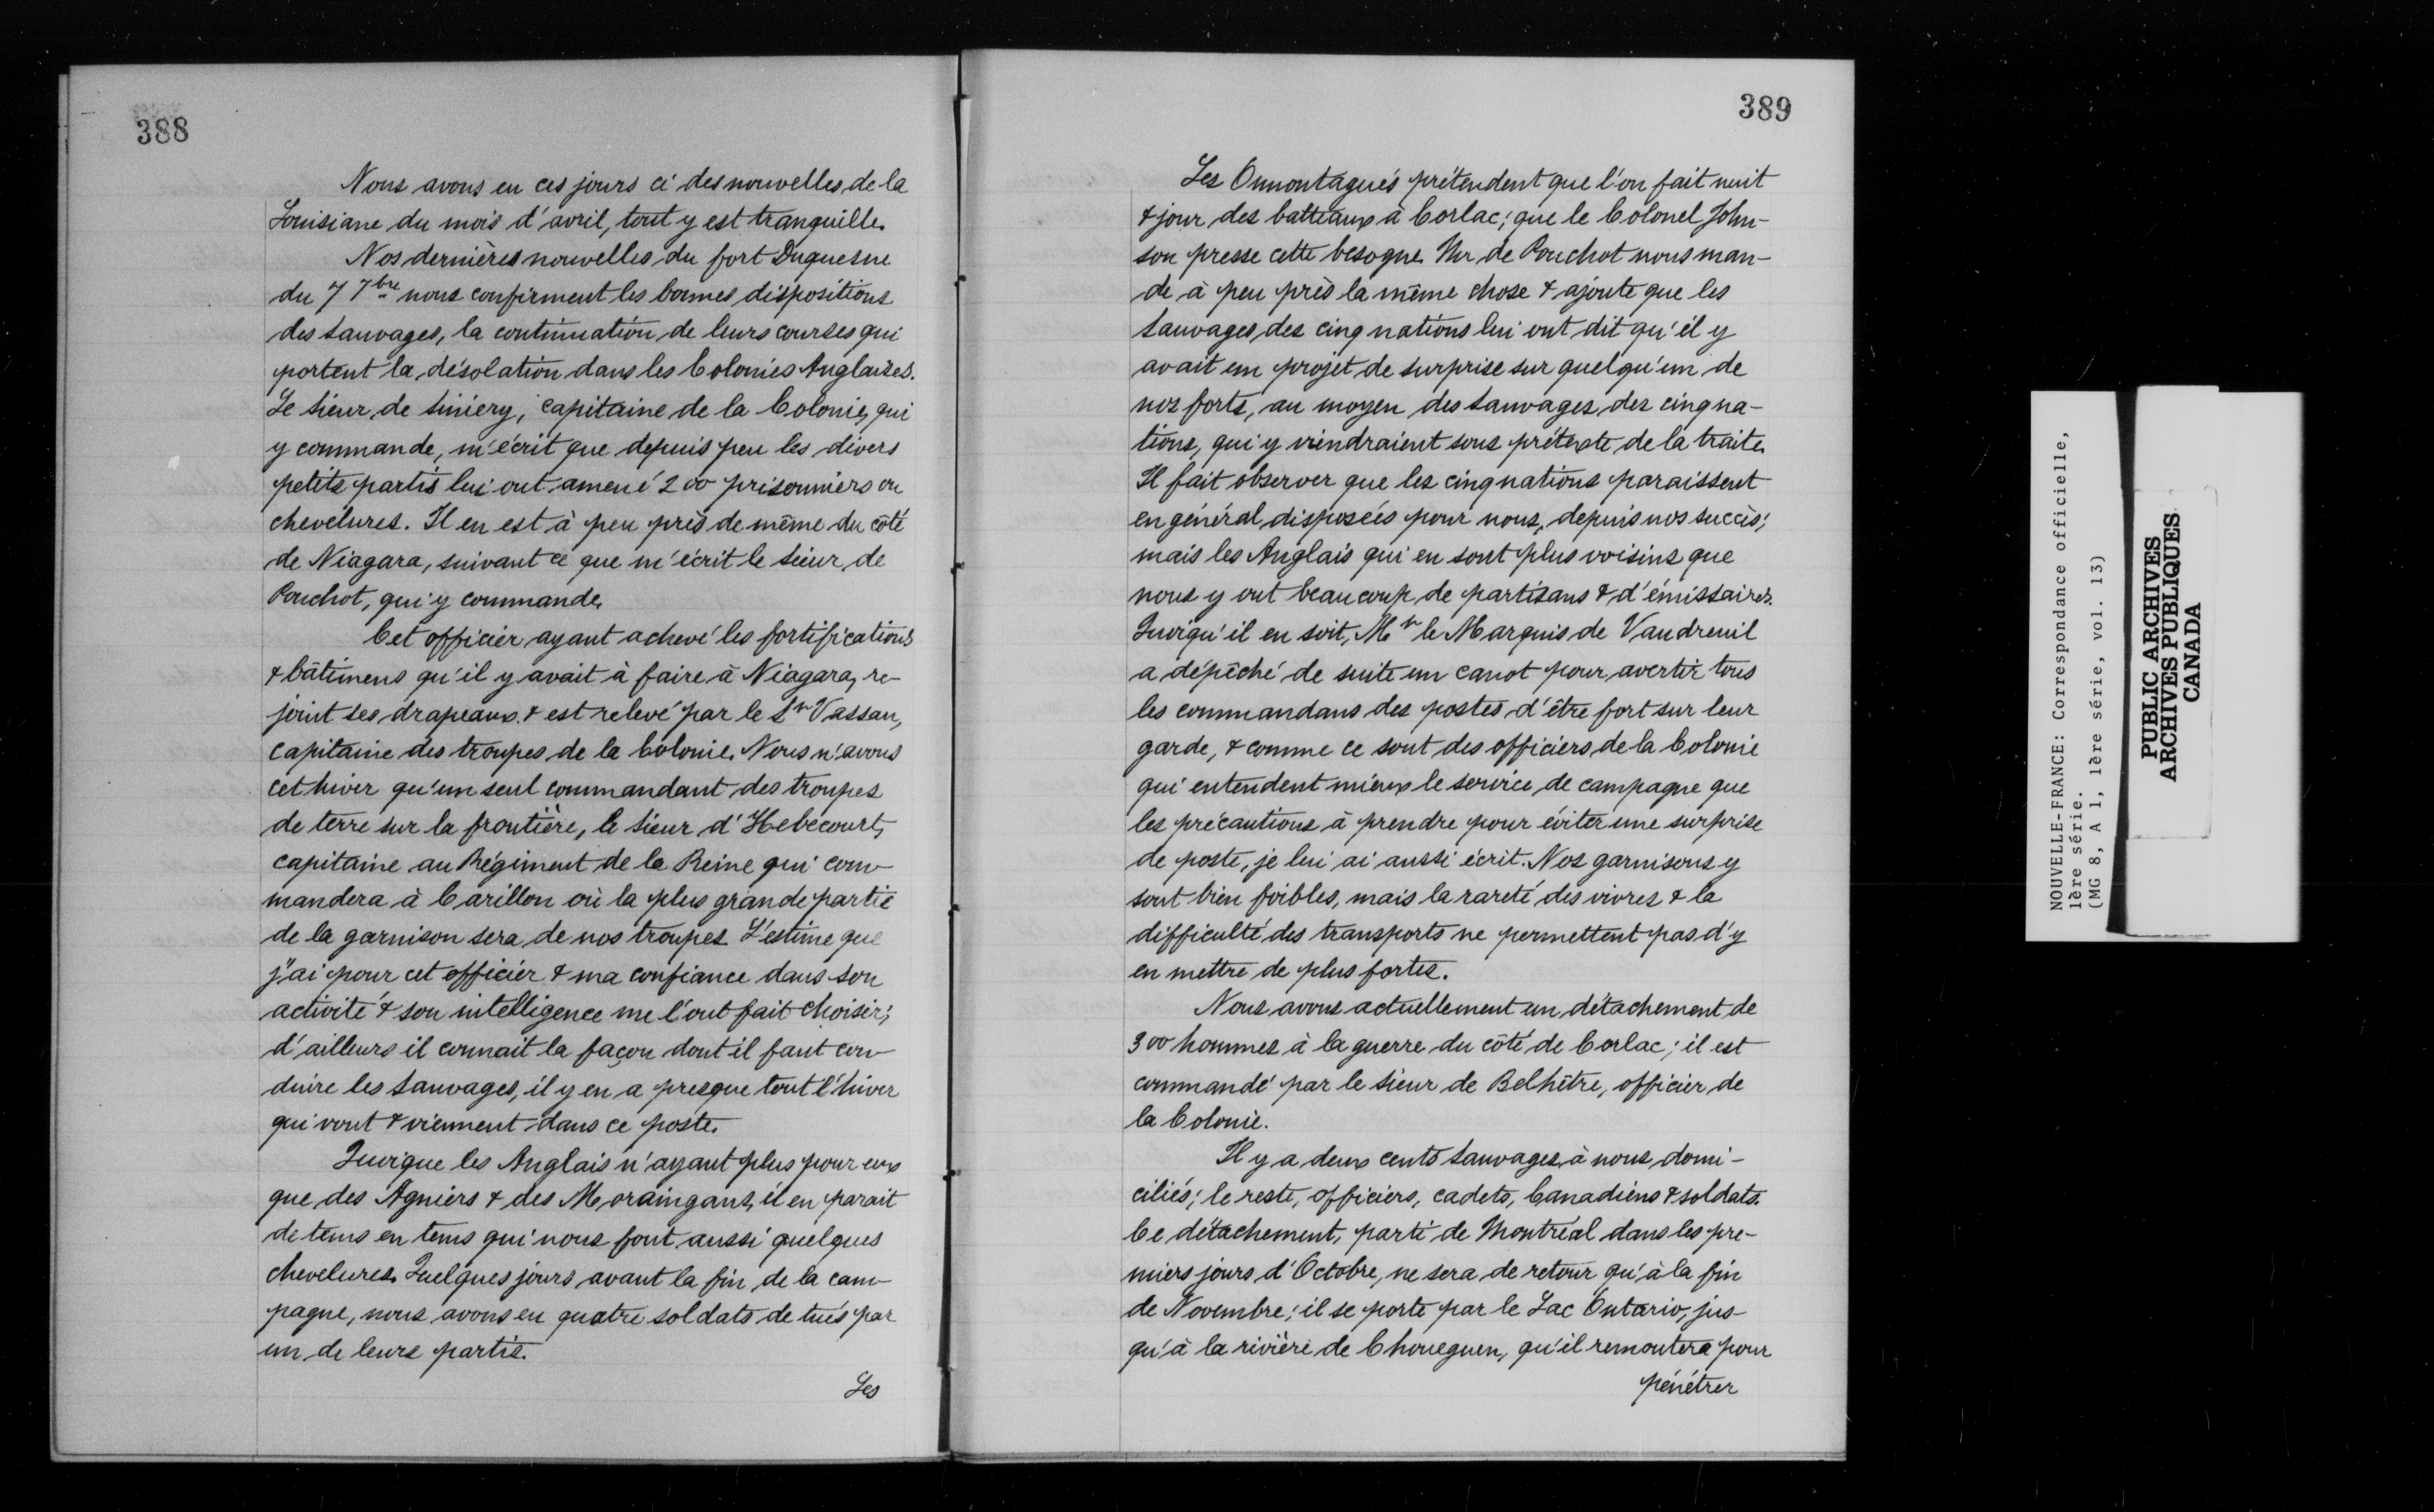 388
Nous avons eu ces jours ci des nouvelles de la
Louisiane du mois d'avril, tout y est tranquille.
Nos dernières nouvelles du fort Duquesne
du 7 7bre nous confirment les bonnes dispositions
des sauvages, la continuation de leurs courses qui
portent la désolation dans les Colonies Anglaises.
Le sieur de Liniery, capitaine de la Colonie, qui
y commande, m'écrit que depuis peu les divers
petits partis lui ont amené 200 prisonniers ou
chevelures. Il en est à peu près de même du côté
de Niagara, suivant ce que m'écrit le sieur de
Pouchot, qui y commande.
Cet officier ayant achevé les fortifications
& bâtimens qu'il y avait à faire à Niagara, re-
joint ses drapeaux & est relevé par le Sr Vassan,
capitaine des troupes de la Colonie. Nous n'avons
cet hiver qu'un seul commandant des troupes
de terre sur la frontière, le sieur d'Hebecourt,
capitaine au Régiment de la Reine qui com-
mandera à Carillon où la plus grande partie
de la garnison sera de nos troupes. L'estime que
j'ai pour cet officier & ma confiance dans son
activité & son intelligence me l'ont fait choisir;
d'ailleurs il connait la façon dont il faut con-
duire les sauvages, il y en a presque tout l'hiver
qui vont & viennent dans ce poste.
Quoique les Anglais n'ayant plus pour eux
que des Agniers & des Moraingans, il en parait
de tems en tems qui nous font aussi quelques
chevelures. Quelques jours avant la fin de la cam-
pagne, nous avons eu quatre soldats de tués par
un de leurs partis.
Les
389
Les Onnontagués prétendent que l'on fait nuit
& jour des batteaux à Corlac; que le Colonel John-
son presse cette besogne. Mr de Pouchot nous man-
de à peu près la même chose & ajoute que les
sauvages des cinq nations lui ont dit qu'il y
avait un projet de surprise sur quelqu'un de
nos forts, au moyen des sauvages des cinq na-
tions, qui y viendraient sous prétexte de la traite.
Il fait observer que les cinq nations paraissent
en général disposées pour nous, depuis nos succès;
mais les Anglais qui en sont plus voisins que
nous y ont beaucoup de partisans & d'émissaires.
Quoiqu'il en soit, Mr le Marquis de Vaudreuil
a dépêché de suite un canot pour avertir tous
les commandans des postes d'être fort sur leur
garde, & comme ce sont des officiers de la Colonie
qui entendent mieux le service de campagne que
les précautions à prendre pour éviter une surprise
de poste, je lui ai aussi écrit. Nos garnisons y
sont bien foibles, mais la rareté des vivres & la
difficulté des transports ne permettent pas d'y
en mettre de plus fortes.
Nous avons actuellement un détachement de
300 hommes à la guerre du côté de Corlac; il est
commandé par le sieur de Belhêtre, officier de
la Colonie.
Il y a deux cents sauvages à nous domi-
ciliés; le reste, officiers, cadets, Canadiens & soldats.
Ce détachement, parti de Montréal dans les pre-
miers jours d'Octobre, ne sera de retour qu'à la fin
de Novembre; il se porte par le Lac Ontario, jus-
qu'à la rivière de Choueguen, qu'il remontera pour
pénétrer
NOUVELLE-FRANCE: Correspondance officielle,
1ère série.
(MG 8, A 1, 1ère série, vol. 13)
PUBLIC ARCHIVES
ARCHIVES PUBLIQUES
CANADA